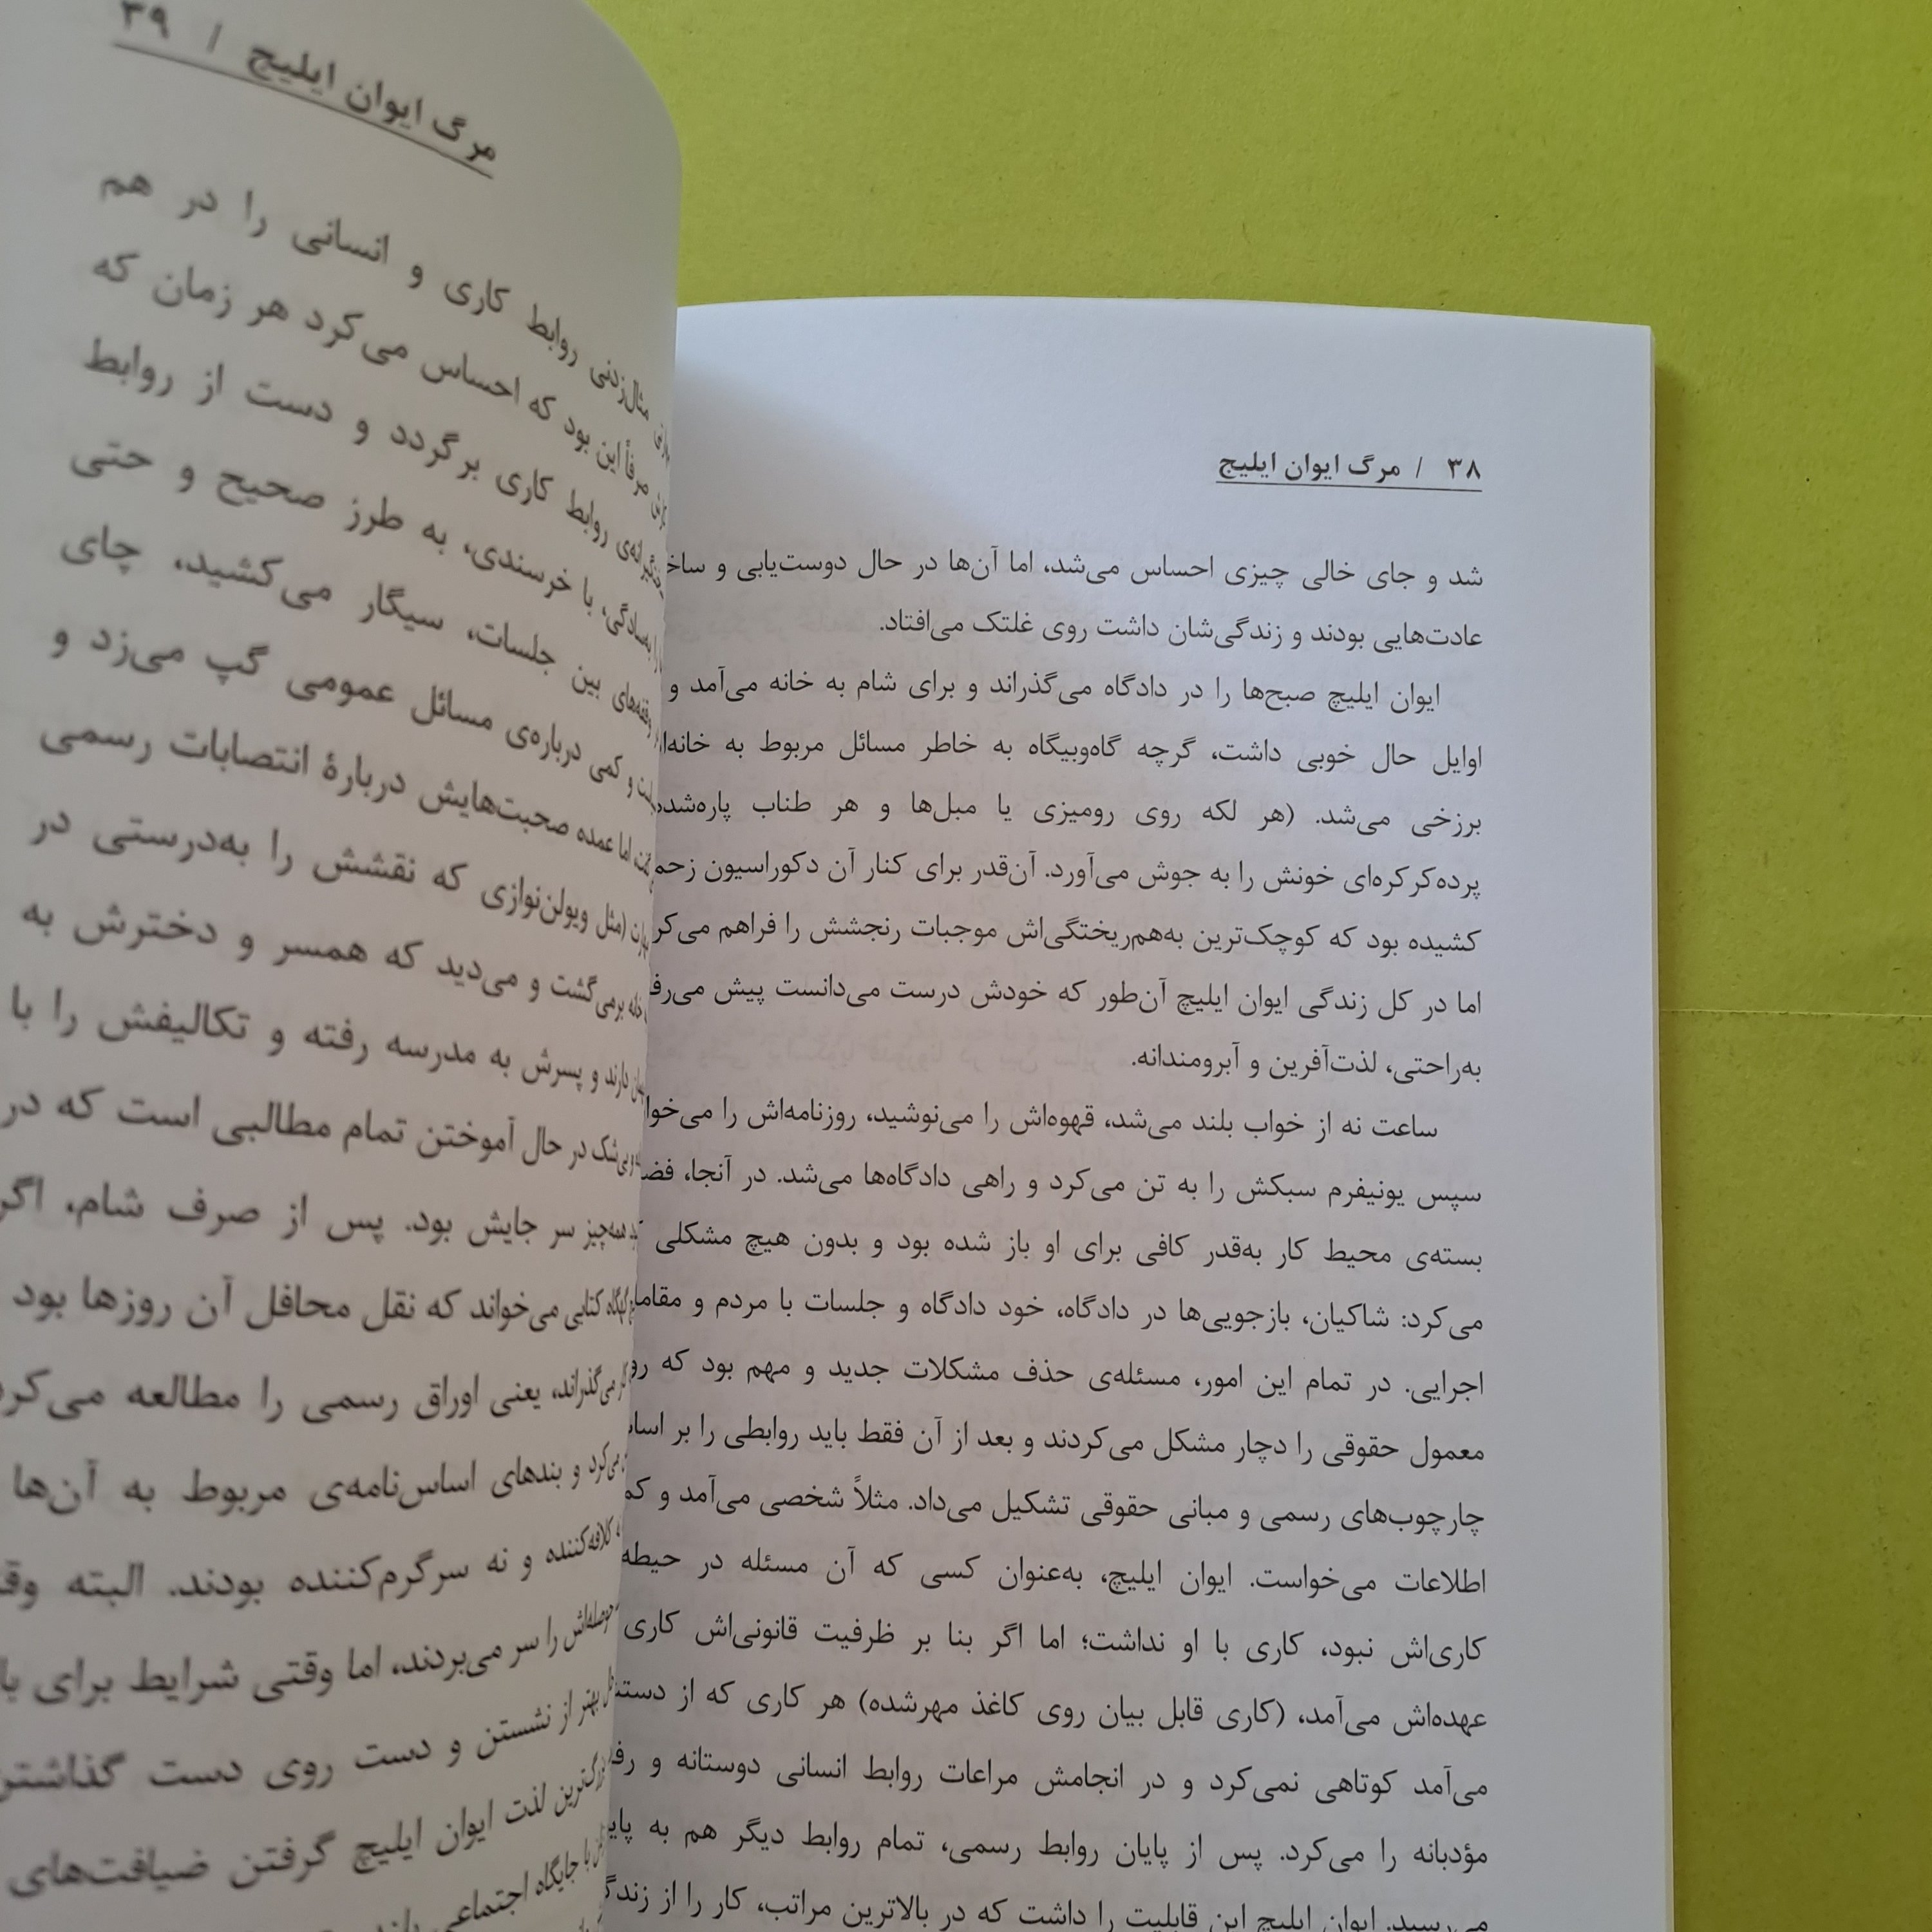 ۳۸ / مرگ ایوان ایلیچ
شد و جای خالی چیزی احساس می‌شد، اما آن‌ها در حال دوست‌یابی و
عادت‌هایی بودند و زندگی‌شان داشت روی غلتک می‌افتاد.
ایوان ایلیچ صبح‌ها را در دادگاه می‌گذراند و برای شام به خانه می‌آمد و
اوایل حال خوبی داشت، گرچه گاه‌وبیگاه به خاطر مسائل مربوط به
برزخی می‌شد. (هر لکه روی رومیزی یا مبل‌ها و هر طناب پاره‌شده
پرده‌کرکره‌ای خونش را به جوش می‌آورد. آن‌قدر برای کنار آن دکوراسیون
کشیده بود که کوچک‌ترین به‌هم‌ریختگی‌اش موجبات رنجشش را فراهم
اما در کل زندگی ایوان ایلیچ آن‌طور که خودش درست می‌دانست پیش
به‌راحتی، لذت‌آفرین و آبرومندانه.
ساعت نه از خواب بلند می‌شد، قهوه‌اش را می‌نوشید، روزنامه‌اش را
سپس یونیفرم سبکش را به تن می‌کرد و راهی دادگاه‌ها می‌شد. در آنجا،
بسته‌ی محیط کار به‌قدر کافی برای او باز شده بود و بدون هیچ مشکلی
می‌کرد: شاکیان، بازجویی‌ها در دادگاه، خود دادگاه و جلسات با مردم و
اجرایی. در تمام این امور، مسئله‌ی حذف مشکلات جدید و مهم بود که
معمول حقوقی را دچار مشکل می‌کردند و بعد از آن فقط باید روابطی را بر
چارچوب‌های رسمی و مبانی حقوقی تشکیل می‌داد. مثلاً شخصی می‌آمد و
اطلاعات می‌خواست. ایوان ایلیچ، به‌عنوان کسی که آن مسئله در
کاری‌اش نبود، کاری با او نداشت؛ اما اگر بنا بر ظرفیت قانونی‌اش کاری
عهده‌اش می‌آمد، (کاری قابل بیان روی کاغذ مهرشده) هر کاری که از
می‌آمد کوتاهی نمی‌کرد و در انجامش مراعات روابط انسانی دوستانه و
مؤدبانه را می‌کرد. پس از پایان روابط رسمی، تمام روابط دیگر هم به
می‌رسید. ایوان ایلیچ این قابلیت را داشت که در بالاترین مراتب، کار را از
مرگ ایوان ایلیچ / ۳۹
مثال‌زدنی روابط کاری و انسانی را در هم
این بود که احساس می‌کرد هر زمان که
روابط کاری برگردد و دست از روابط
با خرسندی، به طرز صحیح و حتی
بین جلسات، سیگار می‌کشید، چای
و کمی درباره‌ی مسائل عمومی گپ می‌زد و
اما عمده صحبت‌هایش دربارهٔ انتصابات رسمی
(مثل ویولن‌نوازی که نقشش را به‌درستی در
خانه برمی‌گشت و می‌دید که همسر و دخترش به
دارند و پسرش به مدرسه رفته و تکالیفش را با
در حال آموختن تمام مطالبی است که در
همه‌چیز سر جایش بود. پس از صرف شام، اگر
کتابی می‌خواند که نقل محافل آن روزها بود
می‌گذراند، یعنی اوراق رسمی را مطالعه
می‌کرد و بندهای اساس‌نامه‌ی مربوط به آن‌ها
کلافه‌کننده و نه سرگرم‌کننده بودند. البته
حوصله‌اش را سر می‌بردند، اما وقتی شرایط برای
بهتر از نشستن و دست روی دست
لذت ایوان ایلیچ گرفتن ضیافت‌های
با جایگاه اجتماعی